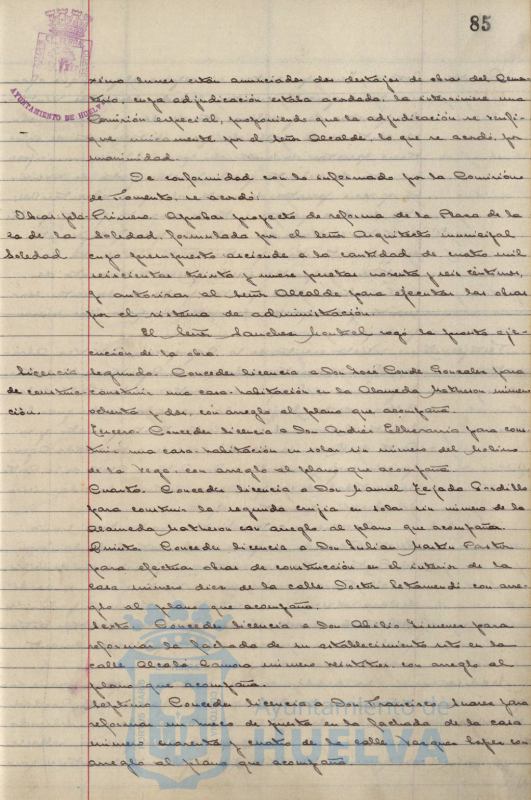 85
AYUNTAMIENTO DE HUELVA
ximo lunes están anunciados dos destajos de obras del
cuya adjudicación estaba acordada, la interviniera una
Comisión especial, proponiendo que la adjudicación se verifi-
que unicamente por el Señor Alcalde, lo que se acordó por
unanimidad.
De conformidad con lo informado por la Comisión
de Fomento, se acordó:
Obras pla-
za de la
Soledad
Primero. Aprobar proyecto de reforma de la Plaza de la
Soledad, formulada por el Señor Arquitecto municipal
cuyo presupuesto asciende a la cantidad de cuatro mil
seiscientas treinta y nueve pesetas noventa y seis céntimos,
y autorizar al Señor Alcalde para ejecutar las obras
por el sistema de administración.
El Señor Sanchez rogó la pronta eje-
cución de la obra.
Licencia
de construc-
ción.
Segundo. Conceder licencia a Don José Conde Gonzalez para
construir una casa-habitación en la Alameda Matheson número
ochenta y dos, con arreglo al plano que acompaña.
Tercero. Conceder licencia a Don Andrés Echevarria para cons-
truir una casa-habitación en solar sin número del Molino
de la Vega, con arreglo al plano que acompaña.
Cuarto. Conceder licencia a Don Manuel Tejado Gordillo
para construir la segunda crujia en solar sin número de la
Alameda Matheson con arreglo al plano que acompaña.
Quinto. Conceder licencia a Don Julian Martin Pastor
para efectuar obras de construcción en el interior de la
casa número diez de la calle Doctor Letamendi con arre-
glo al plano que acompaña.
Sexto. Conceder licencia a Don Abilio Jimenez para
reformar la fachada de su establecimiento sito en la
calle Alcalá Zamora número veintitres, con arreglo al
plano que acompaña.
Septimo. Conceder licencia a Don Francisco Suarez para
reformar un hueco de puerta en la fachada de la casa
número cuarenta y cuatro de la calle Vazquez Lopez con
arreglo al plano que acompaña.
Ayuntamiento de
HUELVA